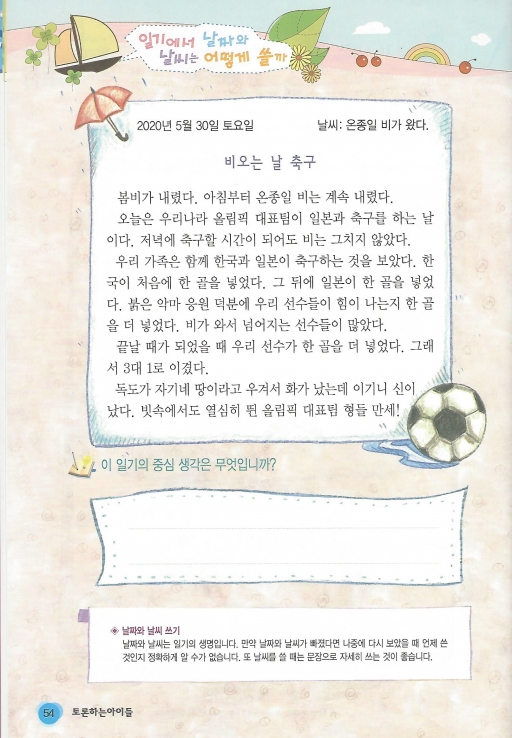 일기에서 날짜와
날씨는 어떻게 쓸까
2020년 5월 30일 토요일 날씨: 온종일 비가 왔다.
비오는 날 축구
봄비가 내렸다. 아침부터 온종일 비는 계속 내렸다.
오늘은 우리나라 올림픽 대표팀이 일본과 축구를 하는 날
이다. 저녁에 축구할 시간이 되어도 비는 그치지 않았다.
우리 가족은 함께 한국과 일본이 축구하는 것을 보았다. 한
국이 처음에 한 골을 넣었다. 그 뒤에 일본이 한 골을 넣었
다. 붉은 악마 응원 덕분에 우리 선수들이 힘이 나는지 한 골
을 더 넣었다. 비가 와서 넘어지는 선수들이 많았다.
끝날 때가 되었을 때 우리 선수가 한 골을 더 넣었다. 그래
서 3대 1로 이겼다.
독도가 자기네 땅이라고 우겨서 화가 났는데 이기니 신이
났다. 빗속에서도 열심히 뛴 올림픽 대표팀 형들 만세!
이 일기의 중심 생각은 무엇입니까?
◈ 날짜와 날씨 쓰기
날짜와 날씨는 일기의 생명입니다. 만약 날짜와 날씨가 빠졌다면 나중에 다시 보았을 때 언제 쓴
것인지 정확하게 알 수가 없습니다. 또 날씨를 쓸 때는 문장으로 자세히 쓰는 것이 좋습니다.
54 토론하는아이들